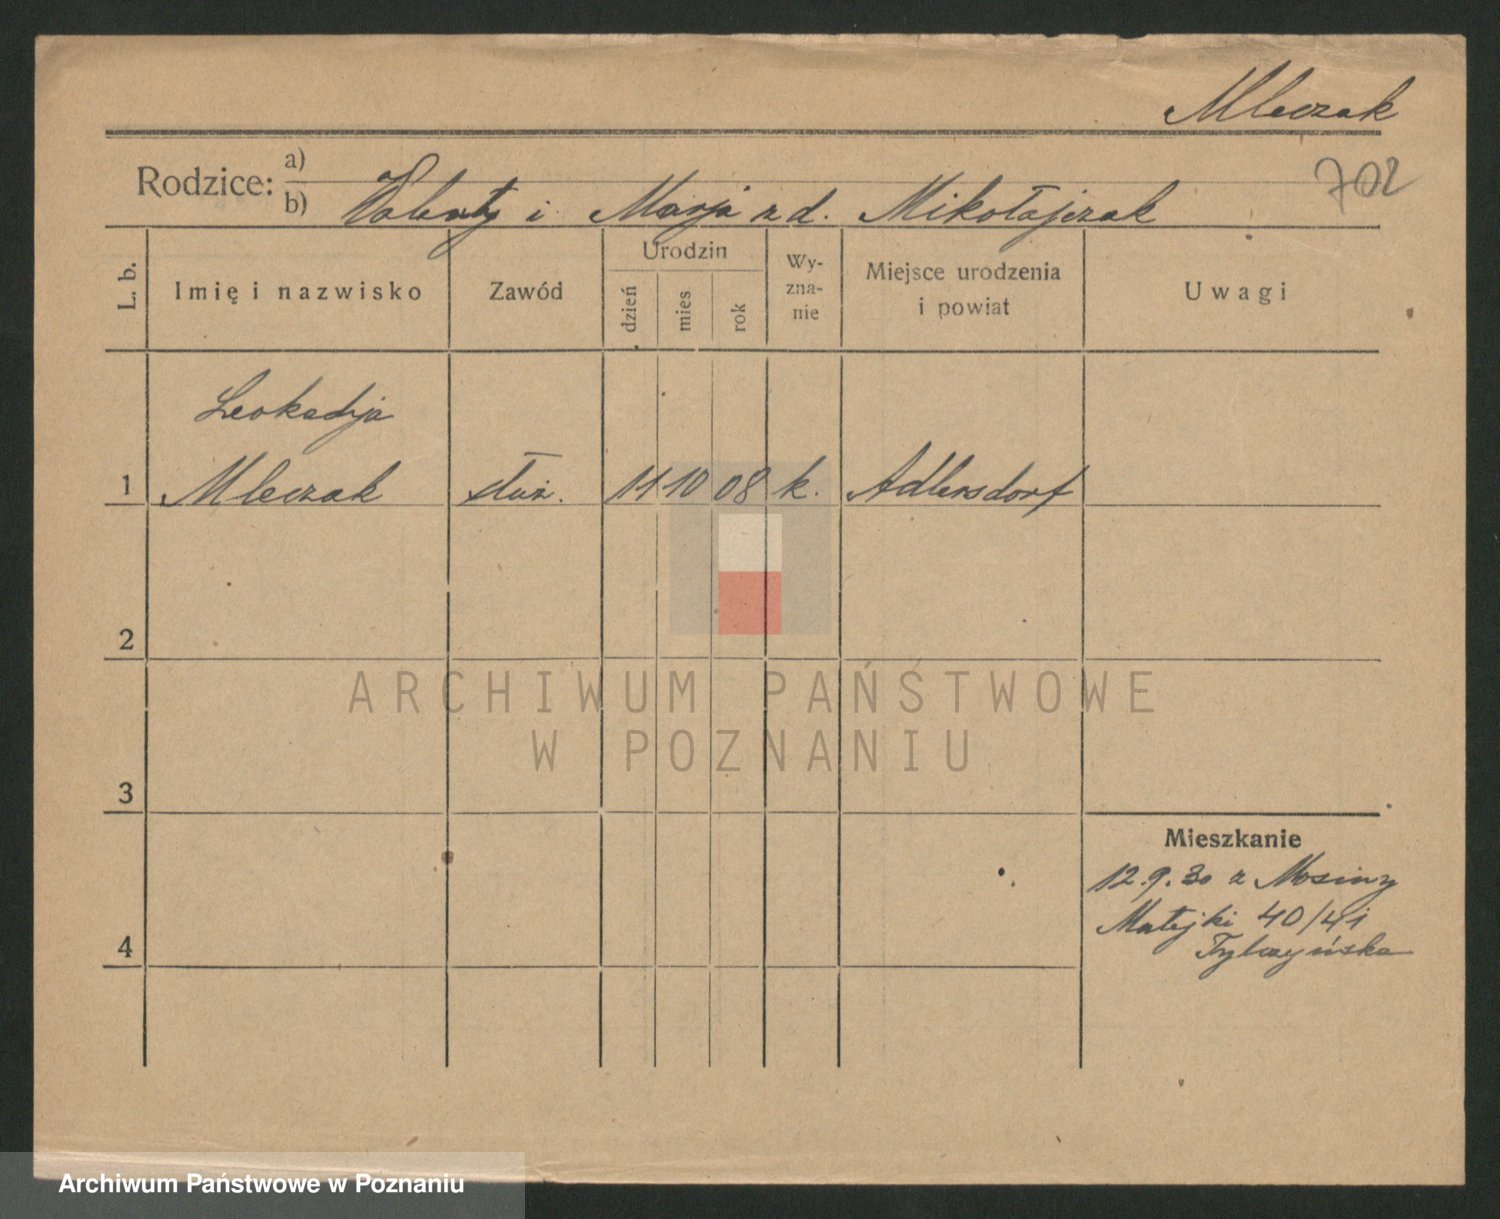 Mleczak
702
Rodzice: a)
b) Walenty i Marja z d. Mikołajczak
L. b.
Imię i nazwisko
Zawód
Urodzin
dzień
mies
rok
Wy-
zna-
nie
Miejsce urodzenia
i powiat
Uwagi
Leokadja
1 Mleczak służ. 11 10 08 k. Adlersdorf
2
3
4
Mieszkanie
12.9.30 z Mosiny
Matejki 40/41
ARCHIWUM PAŃSTWOWE
W POZNANIU
Archiwum Państwowe w Poznaniu